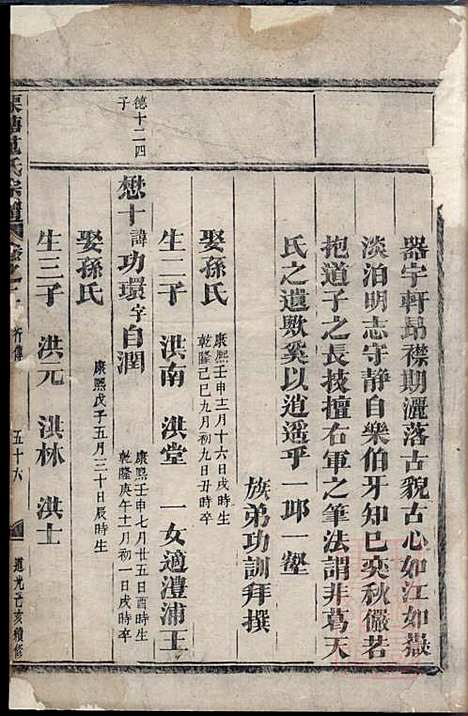 器宇軒昂襟期灑落古貌古心如江如嶽
淡泊明志守静自樂伯牙知巳奕秋儼若
抱道子之長技擅右軍之筆法謂非葛天
氏之遺歟奚以逍遥乎一邱一壑
族弟功訓拜撰
娶孫氏
康熙壬申十二月十六日戌時生
乾隆己巳九月初九日丑時卒
生二子 洪南 洪堂 一女適澧浦王
德十二四子
懋十諱功環字自潤
康熙壬申七月廿五日酉時生
乾隆庚午十一月初一日戌時卒
娶孫氏
康熙戊子五月三十日辰時生
生三子 洪元 洪林 洪士
氏宗譜
卷之
行傳
五十六
道光己亥續修